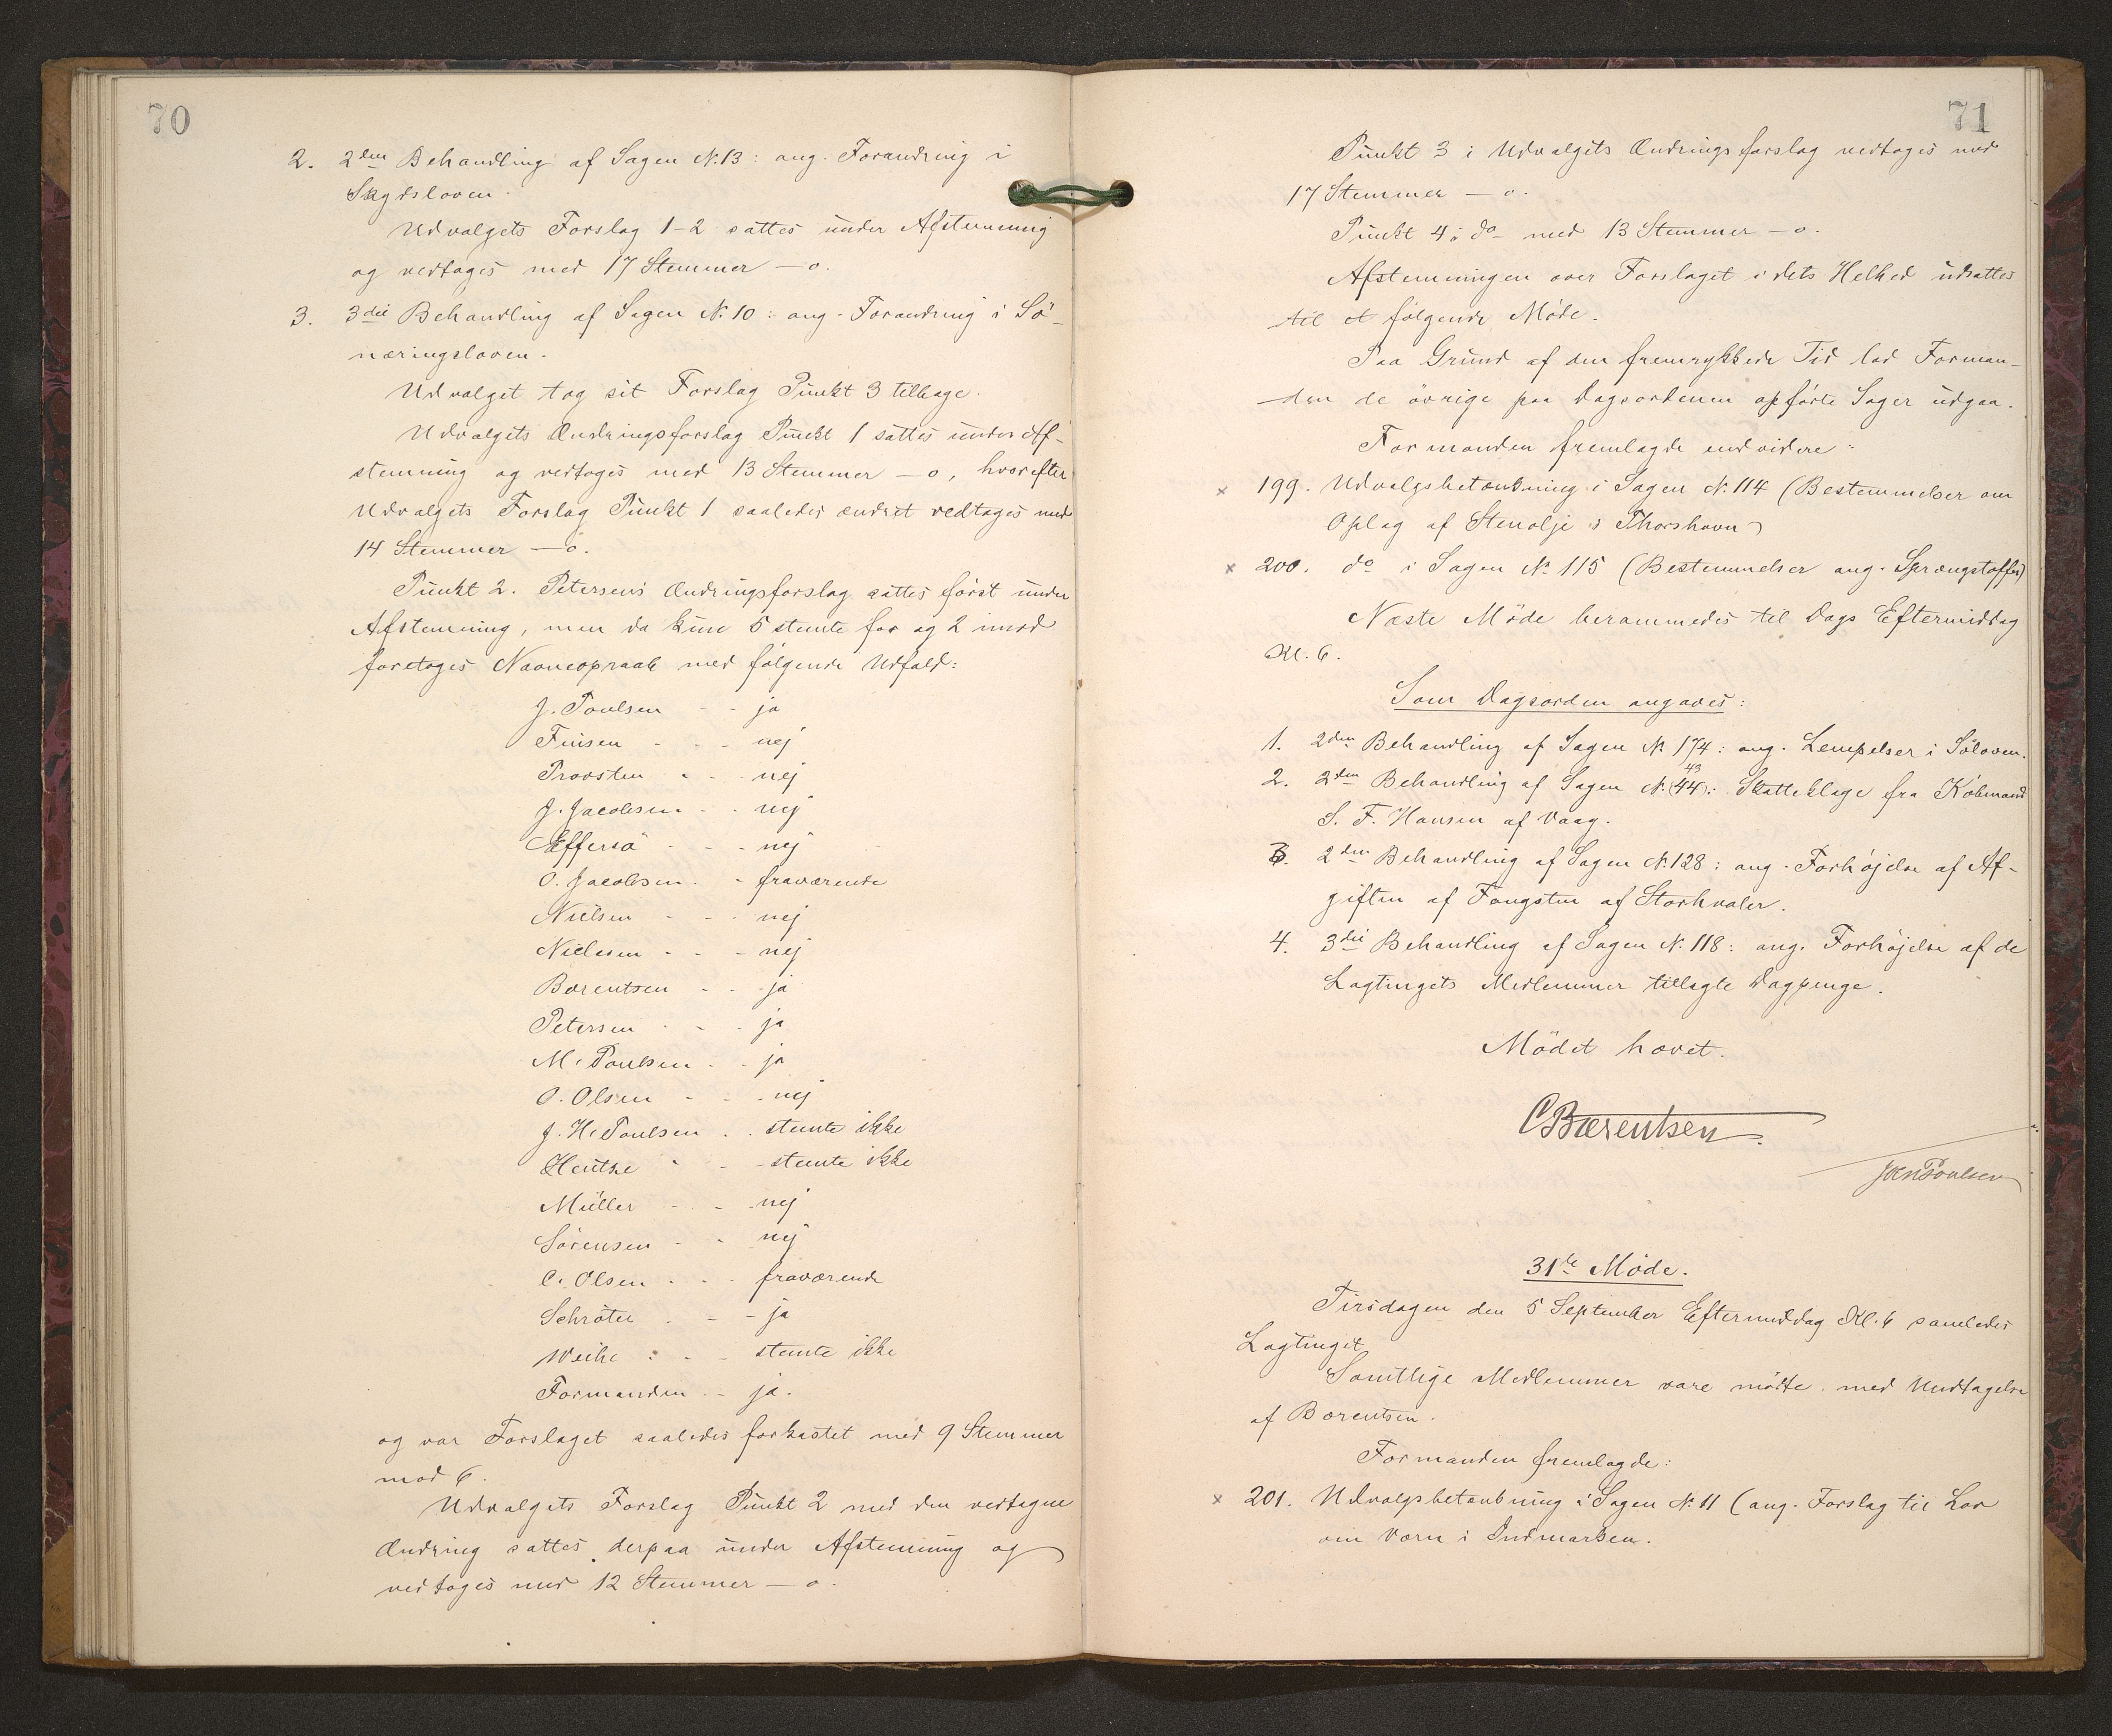 70
2. 2den Behandling af Sagen N. 13: ang. Forandring i
Skydsloven.
Udvalgets Forslag 1-2 sattes under Afstemning
og vedtoges med 17 Stemmer — o.
3. 3die Behandling af Sagen N. 10: ang. Forandring i Sö-
næringsloven.
Udvalget tog sit Forslag Punkt 3 tilbage.
Udvalgets Ændringsforslag Punkt 1 sattes under Af-
stemning og vedtoges med 13 Stemmer — o, hvorefter
Udvalgets Forslag Punkt 1 saaledes ændret vedtoges med
14 Stemmer — o.
Punkt 2. Petersens Ændringsforslag sattes först under
Afstemning, men da kun 5 stemte for og 2 imod
foretoges Navneopraab med fölgende Udfald:
J. Poulsen - - ja
Finsen - - - nej
Provsten - - nej
J. Jacobsen - - nej
Effersö - - - nej
O. Jacobsen - - fraværende
Nielsen - - - nej
Nielsen - - - nej
Bærentsen - - - ja
Petersen - - - ja
M. Poulsen - - ja
O. Olsen - - - nej
J. H. Poulsen . . stemte ikke
Heutze - - - stemte ikke
Müller - - - nej
Sörensen - - nej
C. Olsen - - - fraværende
Schröter . - - ja
Weihe : - - stemte ikke
Formanden - - ja.
og var Forslaget saaledes forkastet med 9 Stemmer
mod 6.
Udvalgets Forslag Punkt 2 med den vedtagne
Ændring sattes derpaa under Afstemning og
vedtoges med 12 Stemmer — o.
71
Punkt 3 i Udvalgets Ændringsforslag vedtoges med
17 Stemmer — o.
Punkt 4 i do — med 13 Stemmer — o.
Afstemningen over Forslaget i dets Helhed udsattes
til et fölgende Möde.
Paa Grund af den fremrykkede Tid lod Forman-
den de övrige paa Dagsordenen opförte Sager udgaa.
Formanden fremlagde endvidere:
x 199. Udvalgsbetænkning i Sagen N. 114 (Bestemmelser om
Oplag af Stenolje i Thorshavn)
x 200. do i Sagen No 115 (Bestemmelser ang. Sprængstoffer)
Næste Möde berammedes til Dags Eftermiddag
Kl. 6.
Som Dagsorden angaves:
1. 2den Behandling af Sagen N. 174: ang. Lempelser i Söloven.
43
2. 2den Behandling af Sagen N. (44): Skatteklage fra Köbmand
S. F. Hansen af Vaag.
3. 2den Behandling af Sagen N. 128: ang. Forhöjelse af Af-
giften af Fangsten af Storhvaler.
4. 3die Behandling af Sagen N. 118: ang. Forhöjelse af de
Lagtingets Medlemmer tillagte Dagpenge.
Mödet hævet.
C Bærentsen.
Poulsen
31te Möde.
Tirsdagen den 5 September Eftermiddag Kl. 6 samledes
Lagtinget
Samtlige Medlemmer vare mödte med Undtagelse
af Bærentsen.
Formanden fremlagde:
x 201. Udvalgsbetænkning i Sagen N. 11 (ang. Forslag til Lov
om Værn i Indmarken.